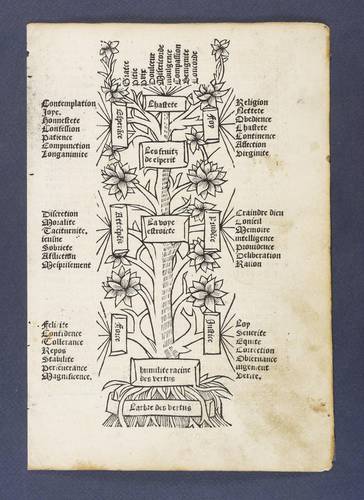 Grace
Pitie
Paix
Doulceur
Misericorde
Indulgence
Compassion
Benignite
Concorde
Charite
Contemplation
Joye.
Honnestete
Confession
Patience
Compunction
Longanimite
Esperāce
Foy
Religion
Nettete
Obedience
Chastete
Continence
Affection
Virginite
Les fruitz
de esperit
Discretion
Moralite
Taciturnite,
ieunie
Sobriete
Affliction
Mesprisement
La voye
estroicte
Craindre dieu
Conseil
Memoire
intelligence
Prouidence
Deliberation
Raison
Felicite
Confidence
Tollerance
Repos
Stabilite
Perseuerance
Magnificence.
Force
Justice
Loy
Seuerite
Equite
Correction
Obseruance
iugement
Verite.
humilite racine
des vertus
Larbre des vertus